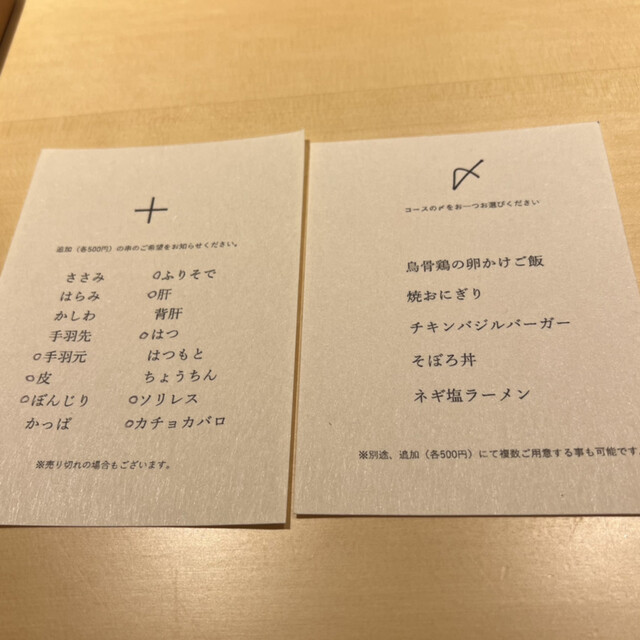 ＋
追加（各500円）の串のご希望をお知らせください。
ささみ ○ふりそで
はらみ ○肝
かしわ 背肝
手羽先 ○はつ
○手羽元 はつもと
○皮 ちょうちん
○ぼんじり ○ソリレス
かっぱ ○カチョカバロ
※売り切れの場合もございます。
〆
コースの〆をお一つお選びください
烏骨鶏の卵かけご飯
焼おにぎり
チキンバジルバーガー
そぼろ丼
ネギ塩ラーメン
※別途、追加（各500円）にて複数ご用意する事も可能です。